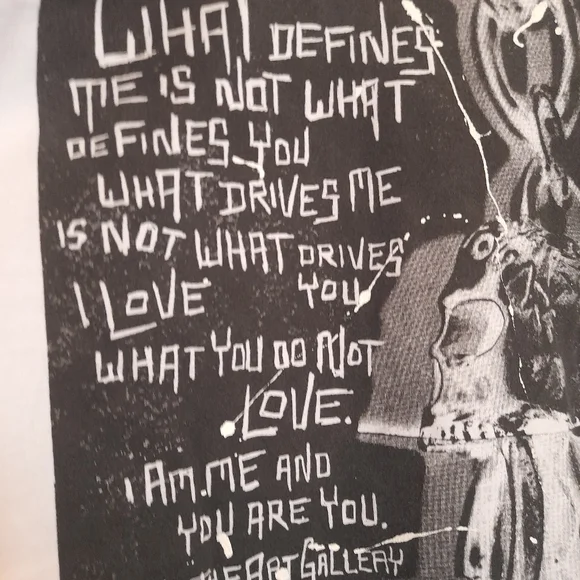 WHAT DEFINES
ME IS NOT WHAT
DEFINES YOU
WHAT DRIVES ME
IS NOT WHAT DRIVES
YOU
I LOVE
WHAT YOU DO NOT
LOVE.
I AM.ME AND
YOU ARE YOU.
THE ART GALLERY